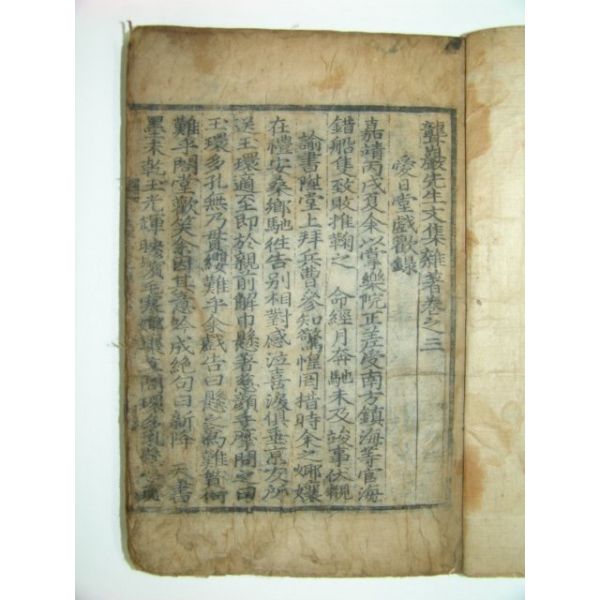 聾巖先生文集雜著卷之三
愛日堂戱歡錄
嘉靖丙戌夏余以掌樂院正差受南方鎭海等官海
錯船隻致敗推鞫之 命經月奔馳未及竣事伏覩
諭書陞堂上拜兵曹參知驚惶罔措時余之爺孃
在禮安桑鄕馳往告別相對感泣喜淚俱垂京友所
送玉環適至卽於親前解巾懸著慈顔垂摩問之曰
玉環多孔無乃貫纓難乎余戱告曰懸之爲難貫何
難乎閤堂歡笑余因其意吟成絶句曰新降 天書
墨未乾玉光輝暎鬢毛寒爺孃 問環多孔懸